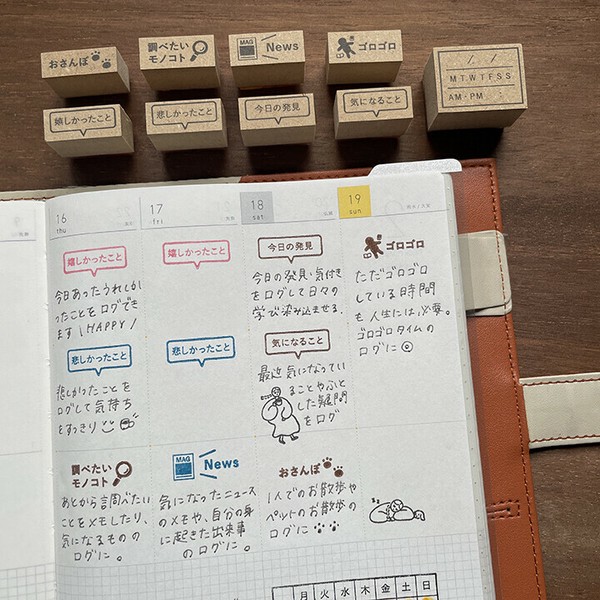 おさんぽ
調べたい
モノコト
MAG
News
ゴロゴロ
/ /
M.T.W.T.F.S.S
AM・PM
嬉しかったこと
悲しかったこと
今日の発見
気になること
16
thu
17
fri
18
sat
19
sun
嬉しかったこと
今日あったうれしか
ったことをログでき
ます \HAPPY/
嬉しかったこと
今日の発見
今日の発見・気付き
をログして日々の
学び染み込ませる.
ゴロゴロ
ただゴロゴロ
している時間
も人生には必要。
ゴロゴロタイムの
ログに
悲しかったこと
悲しかったことを
ログして気持ち
をすっきり
悲しかったこと
気になること
最近気になってい
ることやふと
した疑問
をログ
調べたい
モノコト
あとから調べたい
ことをメモしたり、
気になるものの
ログに。
MAG
News
気になったニュース
のメモや、自分の身
に起きた出来事
のログに。
おさんぽ
1人でのお散歩や
ペットのお散歩の
ログに
月 火 水 木 金 土 日